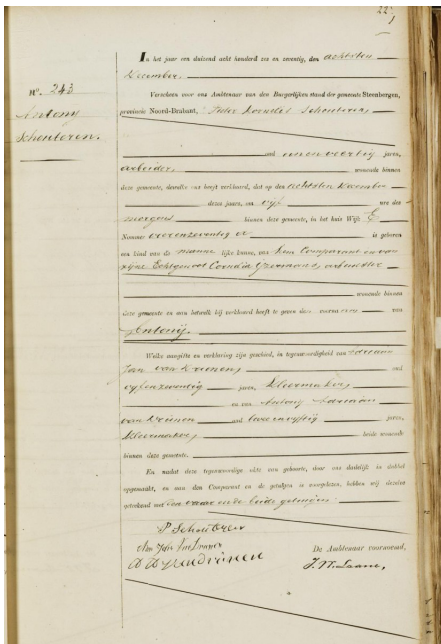 22
N°. 243
Antony
Schouteren.
In het jaar een duizend acht honderd zes en zeventig, den achtsten
December.
Verscheen voor ons Ambtenaar van den Burgerlijken stand der gemeente Steenbergen,
provincie Noord-Brabant, Pieter Kornelis Schouteren,
oud een en veertig jaren,
arbeider, wonende binnen
deze gemeente, dewelke ons heeft verklaard, dat op den achtsten December
dezes jaars, om vijf ure des
morgens binnen deze gemeente, in het huis Wijk E
Nommer is geboren
een kind van de manne lijke kunne, van hem Comparant en van
zijne Echtgenoot Cornelia arbeidster
wonende binnen
deze gemeente en aan hetwelk hij verklaard heeft te geven den voornaam van
Antony.
Welke aangifte en verklaring zijn geschied, in tegenwoordigheid van Adriaan
Jan van Drunen, oud
vijfenzeventig jaren, Kleermaker,
en van Antony Adriaan
van Drunen oud twee en vijftig jaren,
Kleermaker, beide wonende
binnen deze gemeente.
En nadat deze tegenwoordige akte van geboorte, door ons dadelijk in dubbel
opgemaakt, en aan den Comparant en de getuigen is voorgelezen, hebben wij dezelve
geteekend met den vader en de beide getuigen.
P Schouteren
van Drunen
A A van Drunen
De Ambtenaar voornoemd,